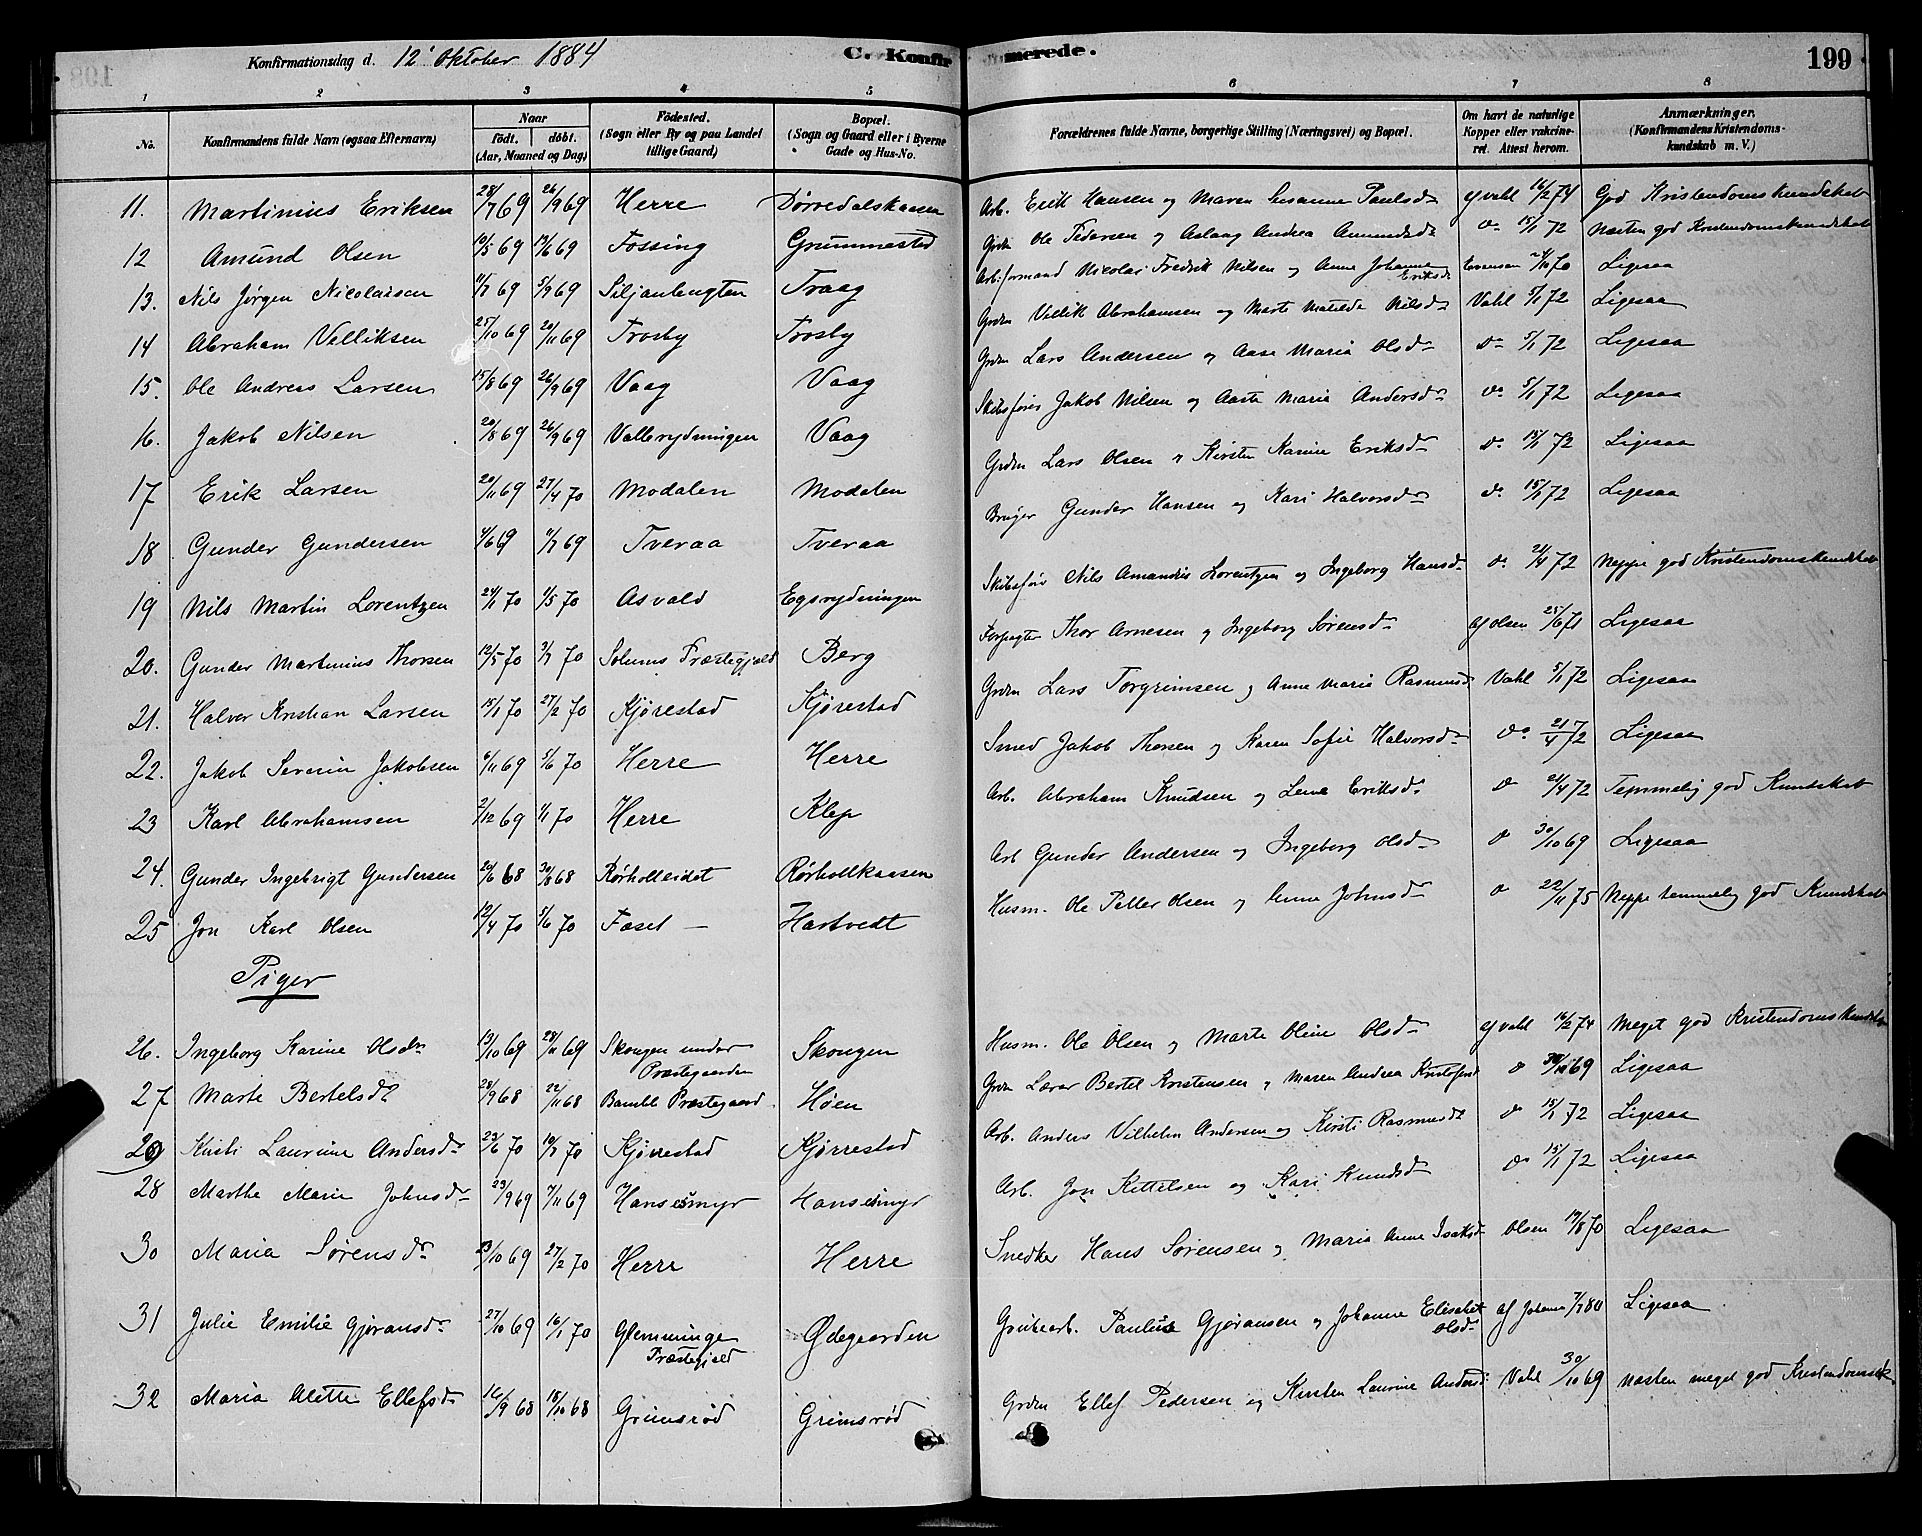 Konfirmationsdag d. 12' Oktober 1884 C. Konfirmerede. 199
1 2 3 4 5 6 7 8
No. Konfirmandens fulde Navn (ogsaa Efternavn) Naar født. døbt. (Aar, Maaned og Dag) Fødested. (Sogn eller By og paa Landet tillige Gaard) Bopæl. (Sogn og Gaard eller i Byerne Gade og Hus-No. Forældrenes fulde Navne, borgerlige Stilling (Næringsvei) og Bopæl. Om havt de naturlige Kopper eller vakcineret. Attest herom. Anmærkninger. (Konfirmandens Kristendomskundskab m. V.)
11. Martinius Eriksen 28/7 69 26/9 69 Herre Dørvedalskaasen Arb. Erik Hansen og Maren Susanne Paulsd. af Vahl 16/2 74 God Kristendomskundskab
12 Amund Olsen 10/5 69 13/6 69 Fossing Grummestad Grdm Ole Pedersen og Aslaug Andrea Amundsd. do 15/1 72 Næsten god Kristendomskundskab
13. Nils Jørgen Nicolaisen 4/7 69 5/9 69 Siljanbugten Traag Arb.formand Nicolai Fredrik Nilsen og Anne Johanne Eriksd. 24/10 70 Ligesaa
14 Abraham Velliksen 25/10 69 20/11 69 Trosby Trosby Grdm Vellik Abrahamsen og Marte Matilde Nilsd. Vahl 5/1 72 Ligesaa
15. Ole Andreas Larsen 15/8 69 26/9 69 Vaag Vaag Grdm Lars Andersen og Aase Maria Olsd. do 5/1 72 Ligesaa
16. Jakob Nilsen 20/8 69 26/9 69 Vallerydningen Vaag Skibsfører Jakob Nilsen og Aaste Maria Andersd. do 5/1 72 Ligesaa
17 Erik Larsen 20/11 69 27/4 70 Modalen Modalen Grdm Lars Olsen & Kirsten Karine Eriksd. do 15/1 72 Ligesaa
18 Gunder Gundersen 4/6 69 11/7 69 Tveraa Tveraa Bruger Gunder Hansen og Kari Halvorsd. do 15/1 72 Ligesaa
19 Nils Martin Lorentzen 24/1 70 1/5 70 Asvald Egsrydningen Skibsfør Nils Amandus Lorentzen og Ingeborg Hansd. do 21/4 72 Neppe god Kristendomskundskab
20. Gunder Martinius Thorsen 12/5 70 3/7 70 Solums Præstegjeld Berg Forpagter Thor Arnesen og Ingeborg Sørensd. af Olsen 25/6 71 Ligesaa
21. Halvor Kristian Larsen 15/1 70 27/2 70 Kjørestad Kjørestad Grdm Lars Torgrimsen og Anne Maria Rasmusd. Vahl 5/1 72 Ligesaa
22. Jakob Severin Jakobsen 6/11 69 5/6 70 Herre Herre Smed Jakob Thorsen og Karen Sofie Halvorsd. do 21/4 72 Ligesaa
23 Karl Abrahamsen 2/12 69 1/1 70 Herre Klep Arb. Abraham Knudsen og Lene Eriksd. do 21/4 72 Temmelig god Kundskab
24. Gunder Ingebrigt Gundersen 20/6 68 30/8 68 Rørholteidet Rørholtkaasen Arb Gunder Andersen og Ingeborg Olsd. do 30/10 69 Ligesaa
25 Jon Karl Olsen 12/4 70 5/6 70 Foset — Hartvedt Husm. Ole Petter Olsen og Anne Johnsd. do 22/11 75 Neppe temmelig god Kundskab
Piger
26. Ingeborg Karine Olsd. 13/10 69 28/11 69 Skougen under Præstegaarden Skougen Husm. Ole Olsen og Marte Oline Olsd. af Vahl 16/2 74 Meget god Kristendomskundskab
27 Marte Bertelsd. 28/9 68 22/11 68 Bamble Præstegaard Høen Grdm Lærer Bertel Kristensen og Maren Andrea Kristofersd. do 30/10 69 Ligesaa
29 Kirsti Laurine Andersd. 23/6 70 10/7 70 Kjørrestad Kjørrestad Arb. Anders Vilhelm Andersen og Kirsti Rasmusd. do 15/1 72 Ligesaa
28 Marthe Marie Johnsd. 23/9 69 7/11 69 Hansesmyr Hansesmyr Arb. Jon Kittelsen og Kari Knudsd. do 15/1 72 Ligesaa
30 Maria Sørensd. 23/10 69 27/2 70 Herre Herre Snedker Hans Sørensen og Maria Anne Isaksd. Olsen 19/8 70 Ligesaa
31 Julie Emilie Gjøransd. 27/10 69 16/1 70 Glemminge Præstegjeld Ødegaarden Grubearb. Paulus Gjøransen og Johanne Elisabet Olsd. af Johanne 7/7 80 Ligesaa
32 Maria Alette Ellefsd. 16/9 68 18/10 68 Grimsrød Grimsrød Grdm Ellef Pedersen og Kirsten Laurine Andersd. Vahl 30/10 69 Næsten meget god Kristendomssk.